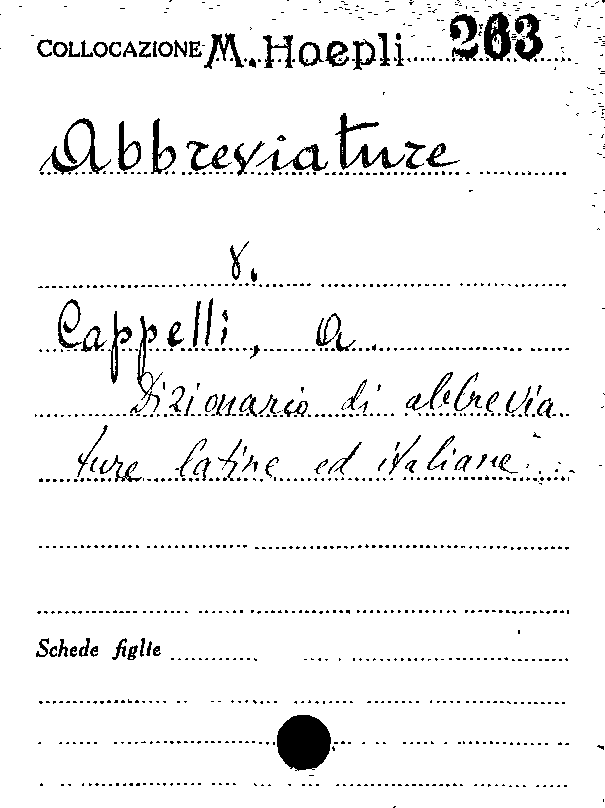 COLLOCAZIONE M. Hoepli 263
Abbreviature
v.
Cappelli, A.
Dizionario di abbrevia
ture latine ed italiane...
Schede figlie